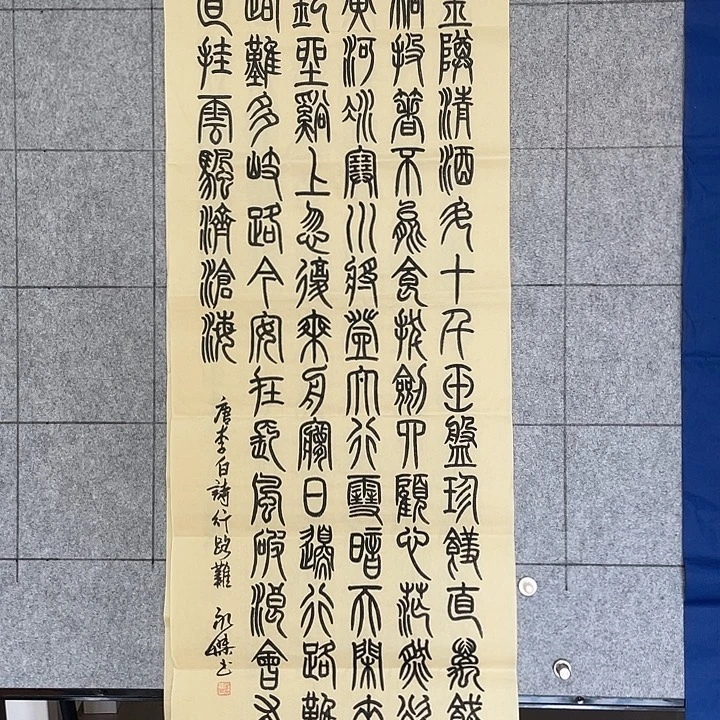 金樽清酒斗十千玉盤珍饈直萬錢
桮投箸不能食拔劍四顧心茫然欲
黃河冰塞川將登太行雪暗天閑來
釣碧谿上忽復乘舟夢日邊行路難
路難多岐路今安在長風破浪會有
直挂雲帆濟滄海
唐李白詩行路難 永傑書